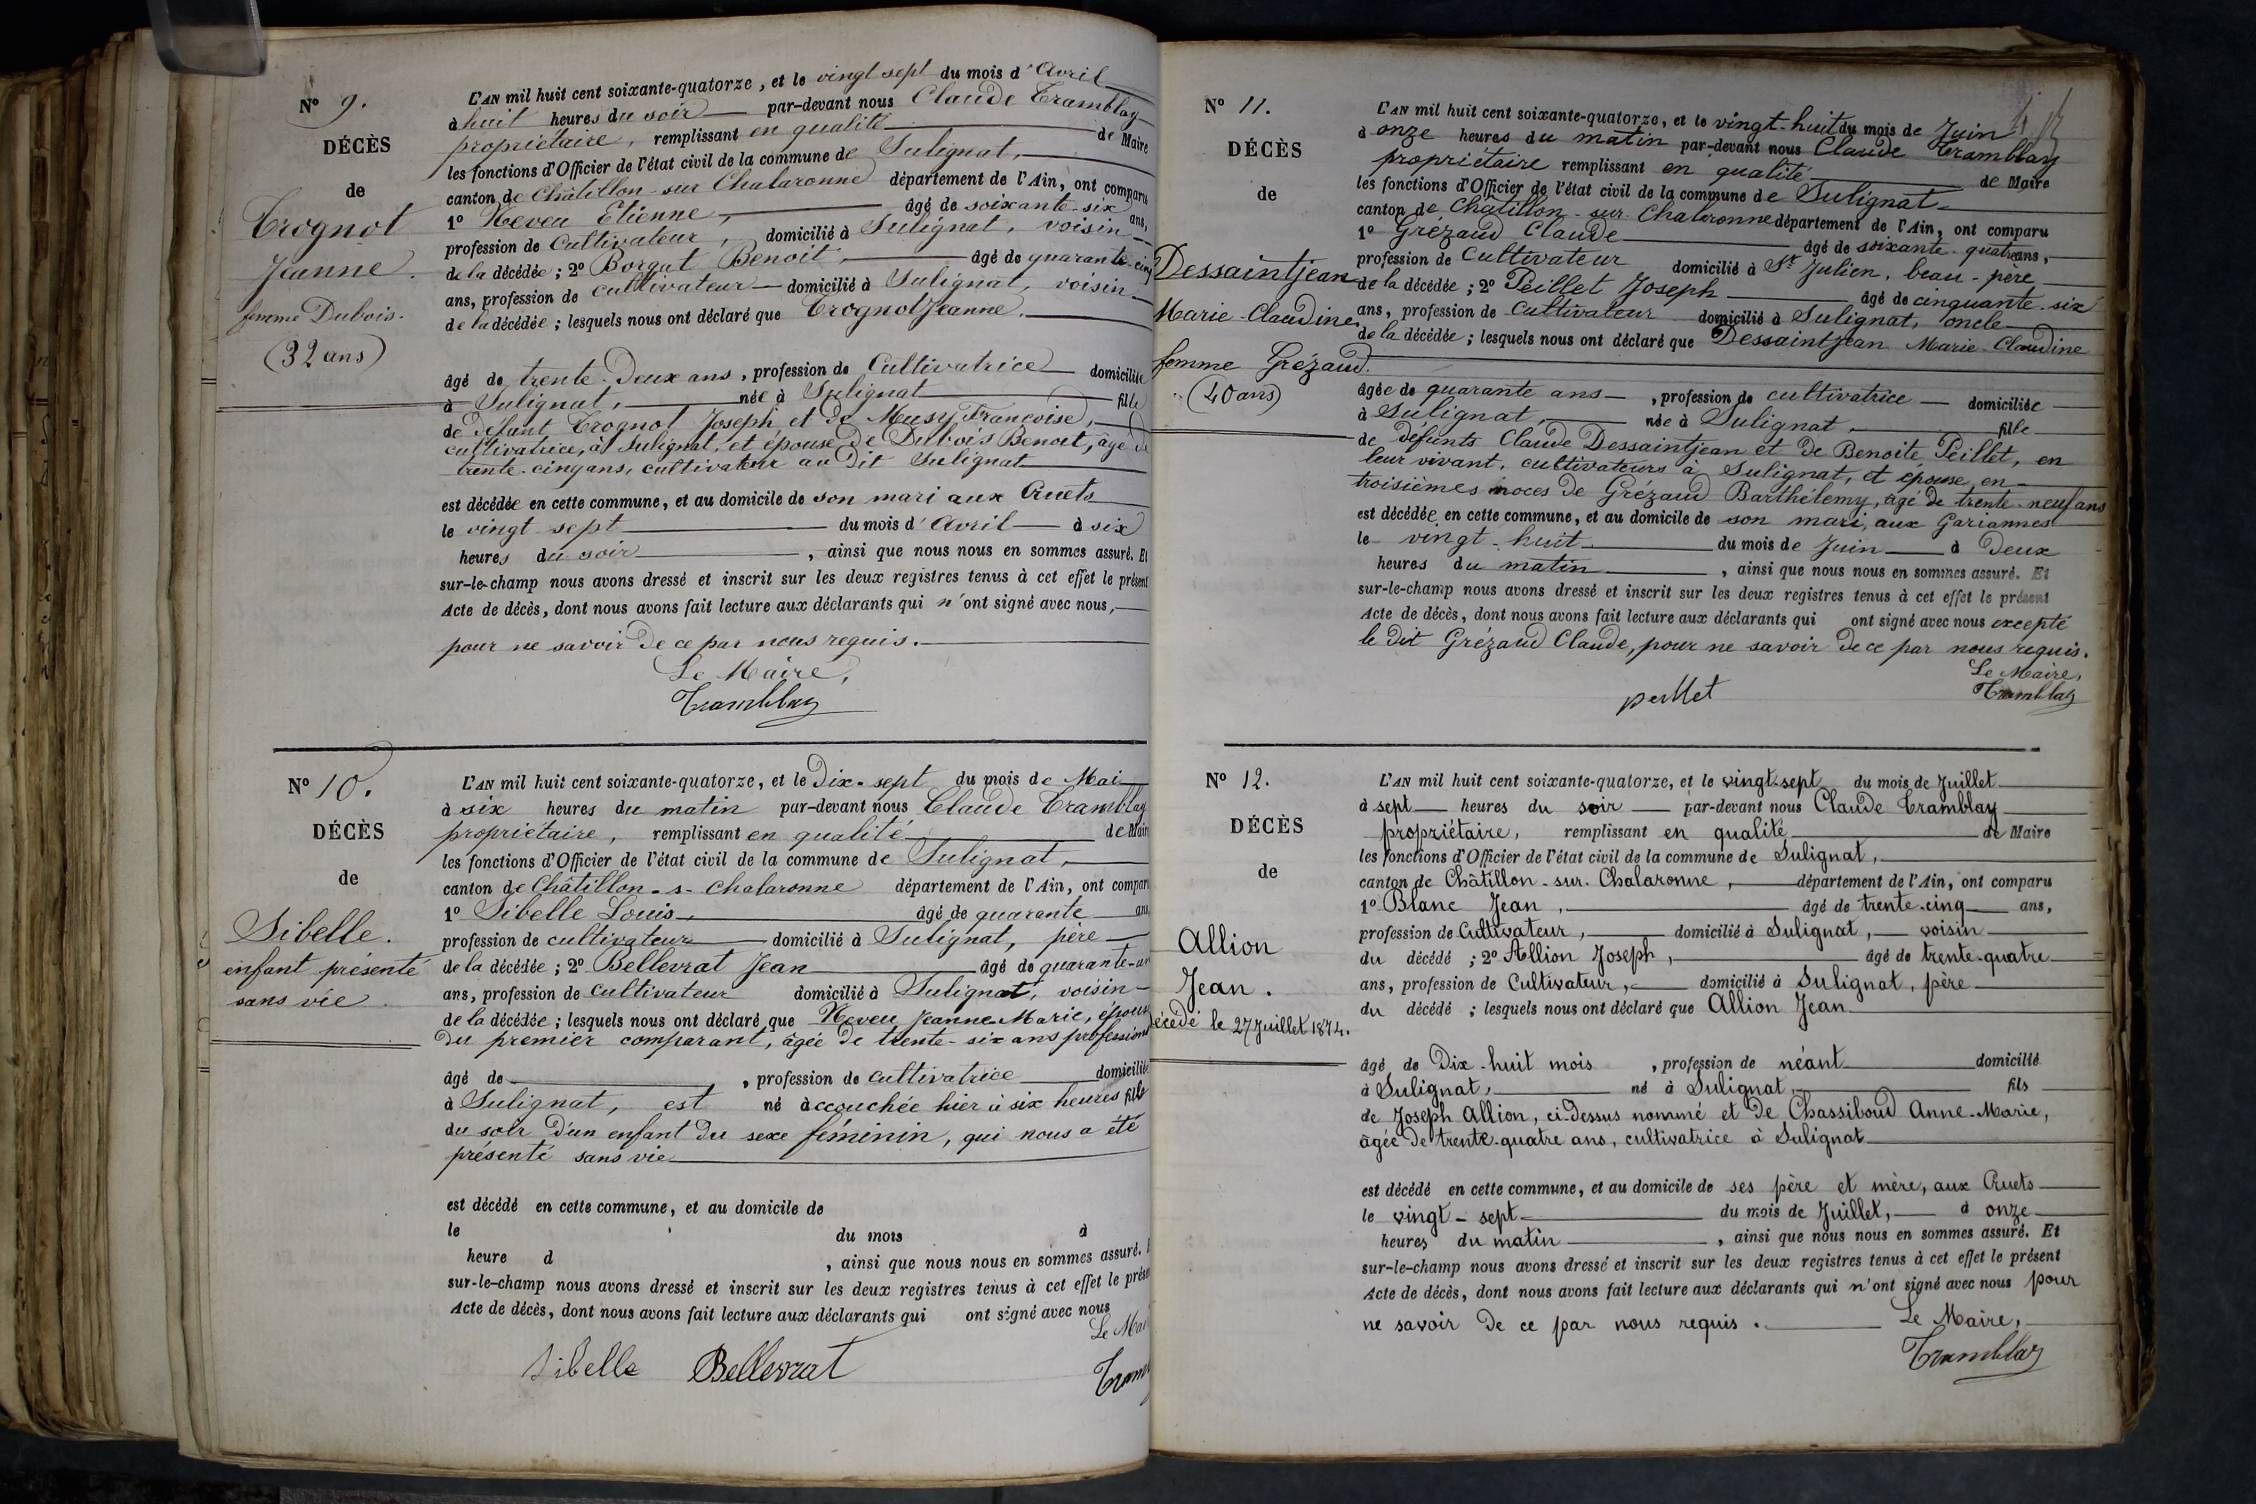 N° 9.
DÉCÈS
de
Trognot
Jeanne.
femme Dubois.
(32 ans)
L'AN mil huit cent soixante-quatorze, et le vingt sept du mois d'Avril
à huit heures du soir par-devant nous Claude Tramblay
propriétaire, remplissant en qualité de Maire
les fonctions d'Officier de l'état civil de la commune de Sulignat,
canton de Châtillon-sur Chalaronne département de l'Ain, ont comparu
1° Neveu Etienne, âgé de soixante-six ans,
profession de Cultivateur, domicilié à Sulignat, voisin
de la décédée; 2° Borgat Benoit, âgé de quarante-cinq
ans, profession de cultivateur domicilié à Sulignat, voisin
de la décédée; lesquels nous ont déclaré que Trognot Jeanne.
âgé de trente-deux ans, profession de Cultivatrice domiciliée
à Sulignat, née à Sulignat fille
de défunt Trognot Joseph et de Musy Françoise,
cultivatrice, à Sulignat, et épouse de Dubois Benoit, âgé de
trente-cinq ans, cultivateur au dit Sulignat
est décédée en cette commune, et au domicile de son mari aux Cruets
le vingt sept du mois d'Avril à six
heures du soir, ainsi que nous nous en sommes assuré. Et
sur-le-champ nous avons dressé et inscrit sur les deux registres tenus à cet effet le présent
Acte de décès, dont nous avons fait lecture aux déclarants qui n'ont signé avec nous,
pour ne savoir de ce par nous requis.
Le Maire,
Tramblay
N° 10.
DÉCÈS
de
Sibelle.
enfant présenté
sans vie.
L'AN mil huit cent soixante-quatorze, et le Dix-sept du mois de Mai
à six heures du matin par-devant nous Claude Tramblay
propriétaire, remplissant en qualité de Mair
les fonctions d'Officier de l'état civil de la commune de Sulignat,
canton de Châtillon-s-Chalaronne département de l'Ain, ont compar
1° Sibelle Louis, âgé de quarante ans,
profession de cultivateur domicilié à Sulignat, père
de la décédée; 2° Bellevrat Jean âgé de quarante-un
ans, profession de Cultivateur domicilié à Sulignat, voisin
de la décédée; lesquels nous ont déclaré que Neveu Jeanne-Marie, épouse
du premier comparant, âgée de trente-six ans profession
âgé de , profession de cultivatrice domiciliée
à Sulignat, est né accouchée hier à six heures fils
du soir d'un enfant du sexe féminin, qui nous a été
présenté sans vie
est décédé en cette commune, et au domicile de
le du mois à
heure d , ainsi que nous nous en sommes assuré.
sur-le-champ nous avons dressé et inscrit sur les deux registres tenus à cet effet le prése
Acte de décès, dont nous avons fait lecture aux déclarants qui ont signé avec nous
Le Mai
Sibelle Bellevrat Tram
N° 11.
DÉCÈS
de
Dessaintjean
Marie-Claudine
femme Grézaud.
(40 ans)
L'AN mil huit cent soixante-quatorze, et le vingt-huit du mois de Juin
à onze heures du matin par-devant nous Claude Tramblay
propriétaire remplissant en qualité de Maire
les fonctions d'Officier de l'état civil de la commune de Sulignat
canton de Châtillon-sur-Chalaronne département de l'Ain, ont comparu
1° Grézaud Claude âgé de soixante-quatre ans,
profession de Cultivateur domicilié à St Julien, beau-père
de la décédée; 2° Peillet Joseph âgé de cinquante-six
ans, profession de Cultivateur domicilié à Sulignat, oncle
de la décédée; lesquels nous ont déclaré que Dessaintjean Marie-Claudine
âgée de quarante ans, profession de cultivatrice domiciliée
à Sulignat, née à Sulignat, fille
de défunts Claude Dessaintjean et de Benoite Peillet, en
leur vivant, cultivateurs à Sulignat, et épouse en
troisièmes noces de Grézaud Barthélemy, âgé de trente-neuf ans
est décédée en cette commune, et au domicile de son mari, aux Gariannes
le vingt-huit du mois de Juin à Deux
heures du matin, ainsi que nous nous en sommes assuré. Et
sur-le-champ nous avons dressé et inscrit sur les deux registres tenus à cet effet le présent
Acte de décès, dont nous avons fait lecture aux déclarants qui ont signé avec nous excepté
le dit Grézaud Claude, pour ne savoir de ce par nous requis.
Le Maire,
peillet Tramblay
N° 12.
DÉCÈS
de
Allion
Jean.
décédé le 27 Juillet 1874.
L'AN mil huit cent soixante-quatorze, et le vingt-sept du mois de Juillet
à sept heures du soir par-devant nous Claude Tramblay
propriétaire, remplissant en qualité de Maire
les fonctions d'Officier de l'état civil de la commune de Sulignat,
canton de Châtillon-sur-Chalaronne, département de l'Ain, ont comparu
1° Blanc Jean, âgé de trente-cinq ans,
profession de Cultivateur, domicilié à Sulignat, voisin
du décédé; 2° Allion Joseph, âgé de trente-quatre
ans, profession de Cultivateur, domicilié à Sulignat, père
du décédé; lesquels nous ont déclaré que Allion Jean
âgé de Dix-huit mois, profession de néant domicilié
à Sulignat, né à Sulignat, fils
de Joseph Allion, ci-dessus nommé et de Chassiboud Anne-Marie,
âgée de trente-quatre ans, cultivatrice à Sulignat
est décédé en cette commune, et au domicile de ses père et mère, aux Cruets
le vingt-sept du mois de Juillet, à onze
heures du matin, ainsi que nous nous en sommes assuré. Et
sur-le-champ nous avons dressé et inscrit sur les deux registres tenus à cet effet le présent
Acte de décès, dont nous avons fait lecture aux déclarants qui n'ont signé avec nous pour
ne savoir de ce par nous requis. Le Maire,
Tramblay